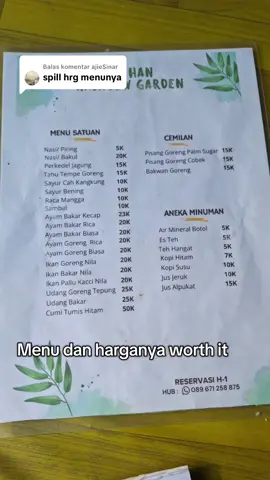 Balas komentar ajieSinar
spill hrg menunya
HAN
GARDEN
MENU SATUAN
Nasi Piring 5K
Nasi Bakul 20K
Perkedel Jagung 15K
Tahu Tempe Goreng 15K
Sayur Cah Kangkung 10K
Sayur Bening 10K
Raca Mangga 10K
Sambal 10K
Ayam Bakar Kecap 23K
Ayam Bakar Rica 20K
Ayam Bakar Biasa 20K
Ayam Goreng Rica 20K
Ayam Goreng Biasa 20K
Ikan Goreng Nila 20K
Ikan Bakar Nila 20K
Ikan Pallu Kacci Nila 20K
Udang Goreng Tepung 25K
Udang Bakar 25K
Cumi Tumis Hitam 50K
CEMILAN
Pisang Goreng Palm Sugar 15K
Pisang Goreng Cobek 15K
Bakwan Goreng 15K
ANEKA MINUMAN
Air Mineral Botol 5K
Es Teh 5K
Teh Hangat 5K
Kopi Hitam 7K
Kopi Susu 10K
Jus Jeruk 10K
Jus Alpukat 15K
Menu dan harganya worth it
RESERVASI H-1
HUB : 089 671 258 875